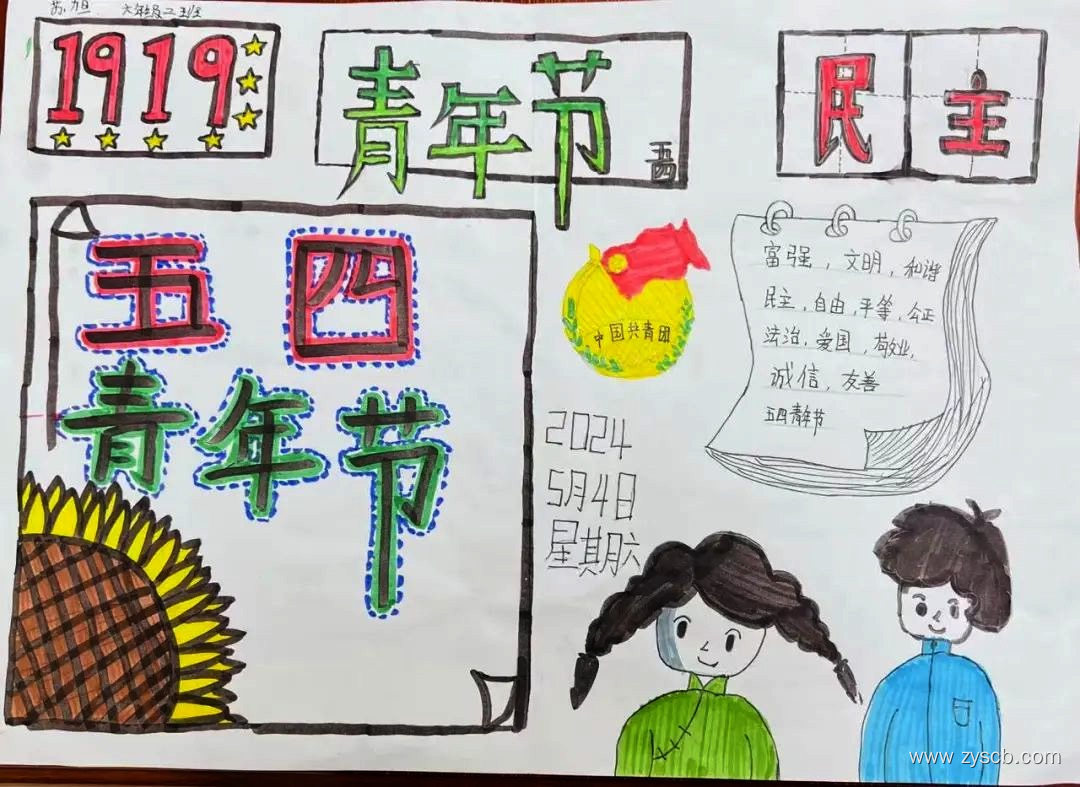 六年级二班
1919
青年节
五四
民主
五四
青年节
中国共青团
富强,文明,和谐
民主,自由,平等,公正
法治,爱国,敬业,
诚信,友善
五四青年节
2024
5月4日
星期六
www.zyscb.com